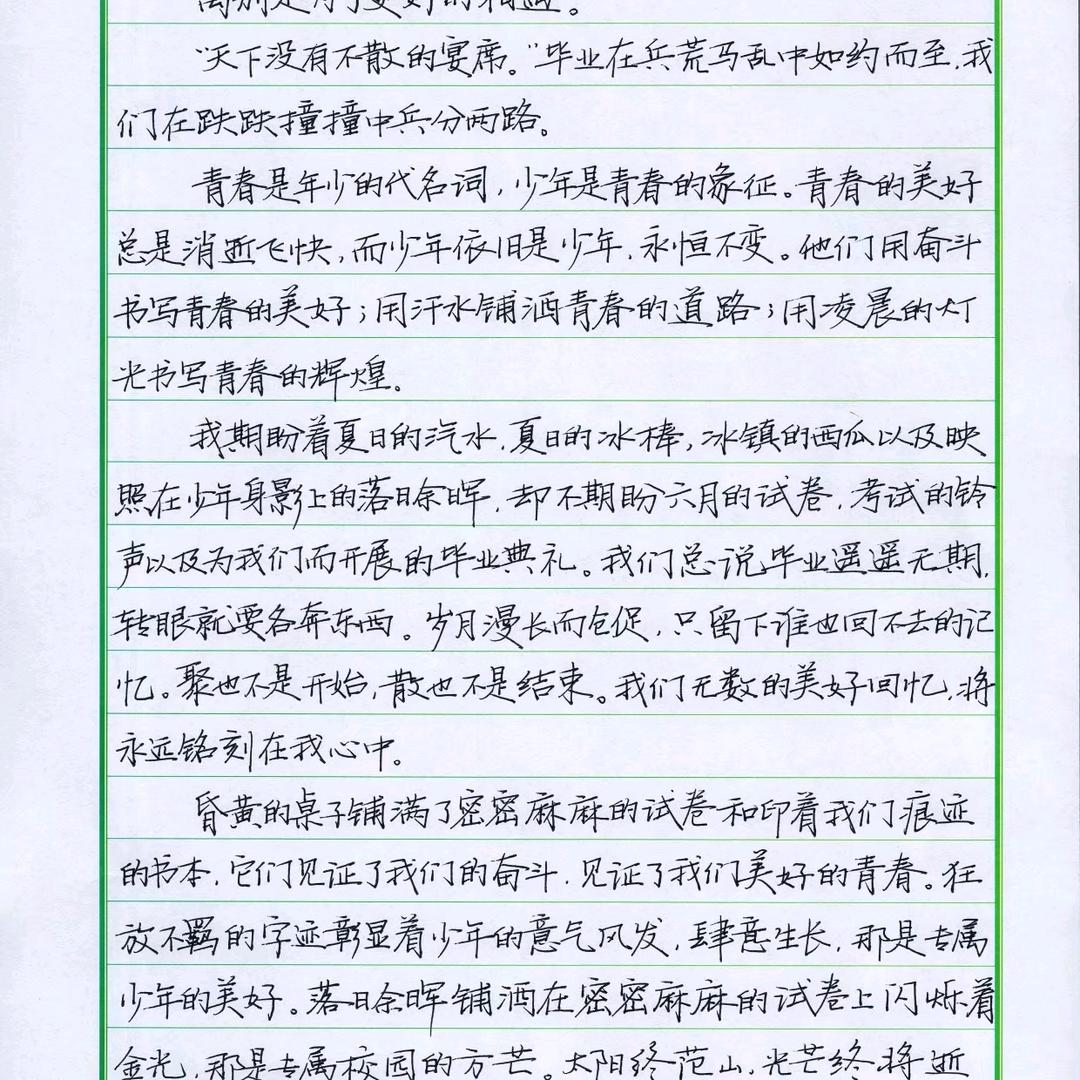 离别是为了更好的相遇。
“天下没有不散的宴席。”毕业在兵荒马乱中如约而至,我
们在跌跌撞撞中兵分两路。
青春是年少的代名词,少年是青春的象征。青春的美好
总是消逝飞快,而少年依旧是少年,永恒不变。他们用奋斗
书写青春的美好;用汗水铺洒青春的道路;用凌晨的灯
光书写青春的辉煌。
我期盼着夏日的汽水,夏日的冰棒,冰镇的西瓜以及映
照在少年身影上的落日余晖,却不期盼六月的试卷,考试的铃
声以及为我们而开展的毕业典礼。我们总说毕业遥遥无期,
转眼就要各奔东西。岁月漫长而仓促,只留下谁也回不去的记
忆。聚也不是开始,散也不是结束。我们无数的美好回忆,将
永远铭刻在我心中。
昏黄的桌子铺满了密密麻麻的试卷和印着我们痕迹
的书本,它们见证了我们的奋斗,见证了我们美好的青春。狂
放不羁的字迹彰显着少年的意气风发,肆意生长,那是专属
少年的美好。落日余晖铺洒在密密麻麻的试卷上闪烁着
金光,那是专属校园的方芒。太阳终范山,光芒终将逝